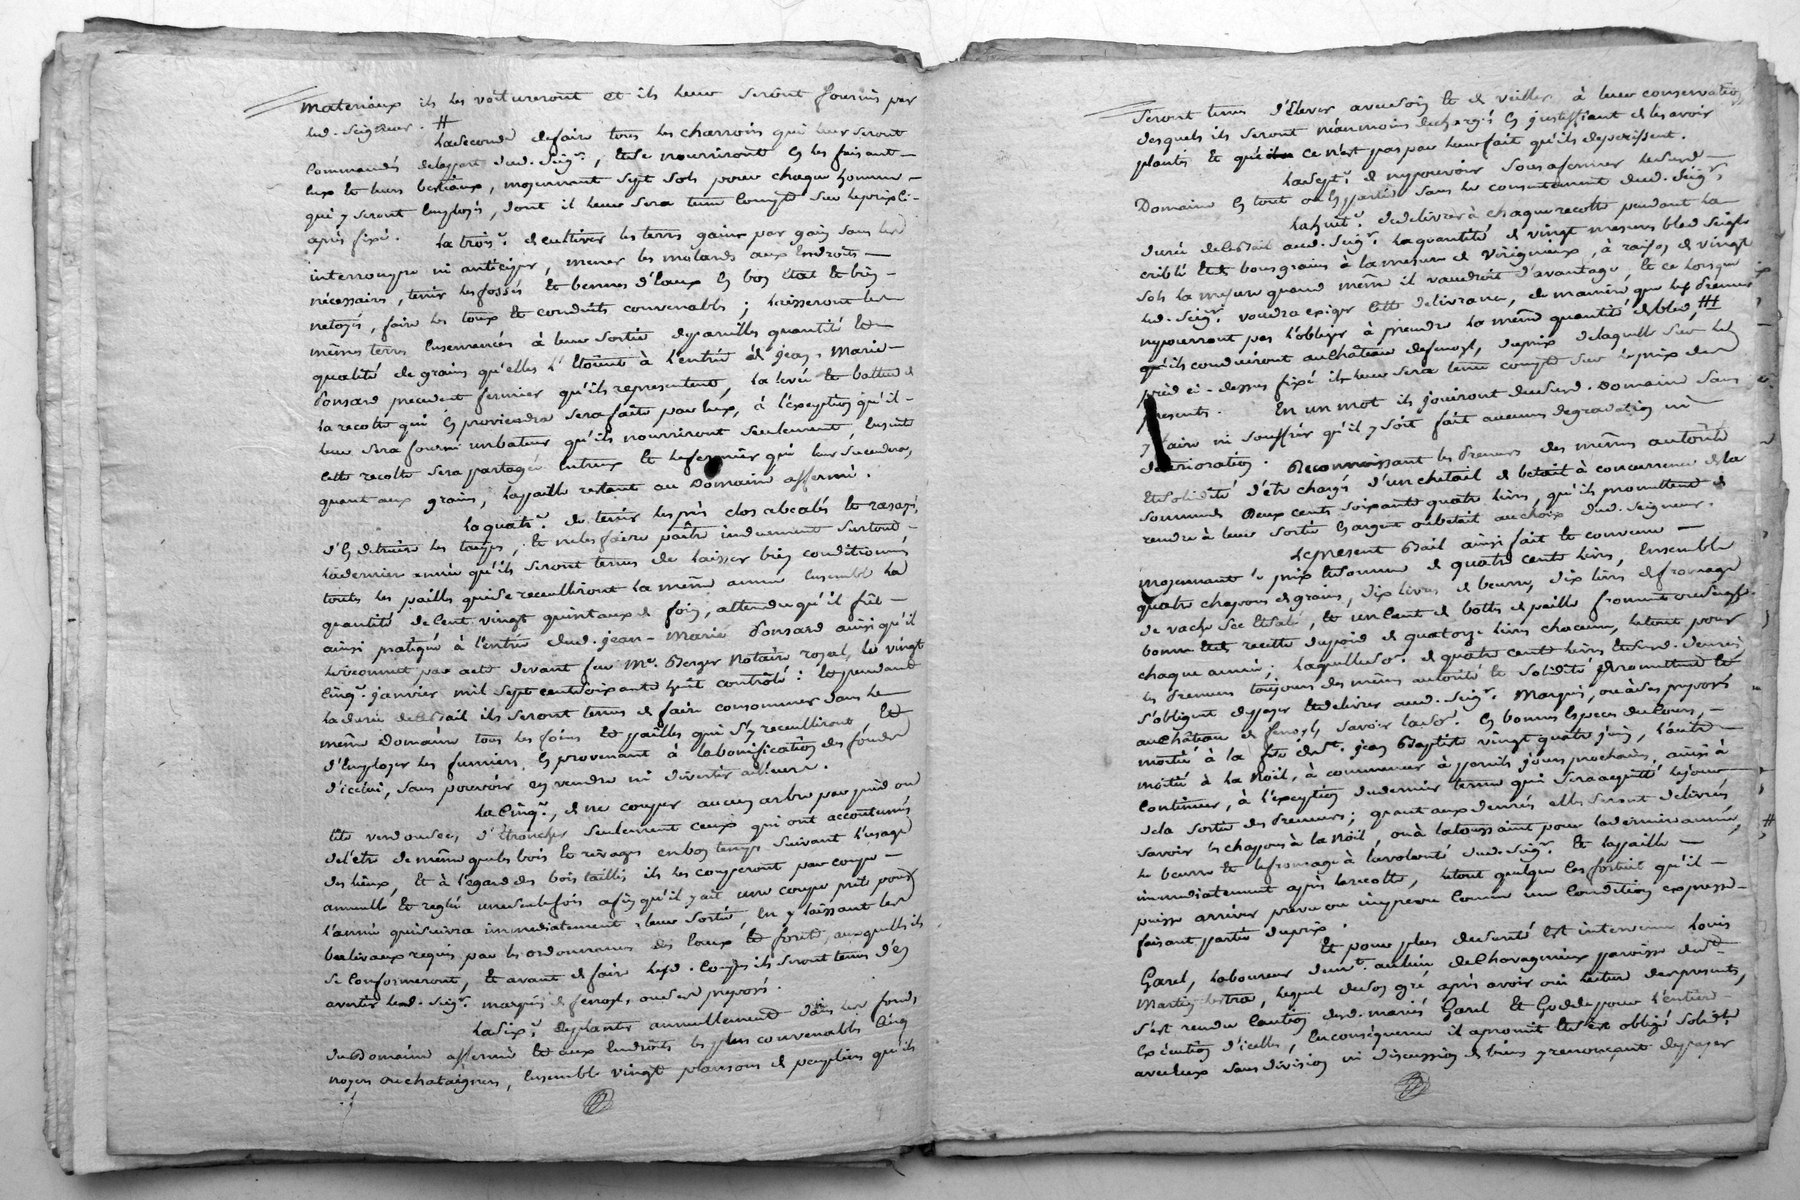 materiaux ils les voitureront et ils leur seront fournis par
led. Seigneur. #
La Seconde de faire tous les charrois qui leur seront
commandés de la part dud. Seigr, et se nourriront en les faisant
eux et leurs bestiaux, moyennant sept sols pour chaque homme
qui y seront employés, dont il leur sera tenu compte sur le prix ci-
après fixé. La trois.e de cultiver les terres gain par gain sans les
interrompre ni anticiper, mener les molards aux endroits
nécessaires, tenir les fossés et bennes d'eaux en bon état et bien
netoyés, faire les toux et conduits convenables; laisseront les
mêmes terres ensemencées à leur sortie de pareilles quantité et
qualité de grains qu'elles l'étoient à l'entrée de jean-Marie
Ponsard precedent fermier qu'ils representent, la levée et battue de
la recolte qui en proviendra sera faite par eux, à l'exception qu'il
leur sera fourni un bateur qu'ils nourriront seulement, ensuite
cette recolte sera partagée entreux et le fermier qui leur succedera,
quant aux grains, la paille restant au Domaine affermé.
La quatr.e de tenir les près clos et rasés,
d'en détruire les taupes, et ne les faire paître induement surtout
la derniere année qu'ils seront tenus de laisser bien conditionnés
toutes les pailles qui se recueilliront la même année ensemble la
quantité de cent vingt quintaux de foin, attendu qu'il fut
ainsi pratiqué à l'entrée dud. jean-Marie Ponsard ainsi qu'il
le reconnut par acte devant feu Me. Berger Notaire royal, le vingt
cinq. janvier mil sept cent soixante huit contrôlé: et pendant
la durée de ce Bail ils seront tenus de faire consommer dans le
même Domaine tous les foins et pailles qui s'y recueilliront, et
d'employer les fumiers en provenant à la bonification des fonds
d'icelui, sans pouvoir en vendre ni divertir ailleurs.
La Cinq.e, de ne couper aucun arbre par pied ou
tête vendousés, d'étroncher seulement ceux qui ont accoutumés
de l'être de même que les bois et rivages en bon temps suivant l'usage
des lieux, et à l'égard des bois taillis ils les couperont par coupe
annuelle et reglée une seule fois afin qu'il y ait une coupe prête pour
l'année qui suivra immediatement leur sortie, en y laissant les
balivaux requis par les ordonnances des eaux et forêts, auxquelles ils
se conformeront, et avant de faire lesd. coupes ils seront tenus d'en
avertir led. Seigr. marquis de fenoyl, ou ses préposés.
La Six.e de planter annuellement dans les fonds
du Domaine affermé et aux endroits les plus convenables cinq
noyers ou chataigners, ensemble vingt plansons de peupliers qu'ils
Seront tenus d'élever avec soin et de veiller à leur conservation
desquels ils seront néanmoins dechargés en justiffiant de les avoir
plantés et que ce n'est pas par leur fait qu'ils deperissent.
La Sept.e de ne pouvoir sous affermer le susd.
Domaine en tout ou en partie sans le consentement dud. Seigr.
La huit.e de delivrer à chaque recolte pendant la
durée de ce Bail aud. Seigr. la quantité de vingt mesures bled seigle
criblé et de bons grains à la mesure de virignieux, à raison de vingt
sols la mesure quand même il vaudroit d'avantage, et ce lorsque
led. Seigr. voudra exiger cette delivrance, de maniere que les Preneurs
ne pourront pas l'obliger à prendre la même quantité de bled, #
qu'ils conduiront au Château de fenoyl, du prix de laquelle sur le
pied ci-dessus fixé il leur sera tenu compte sur le prix des
presents. En un mot ils jouiront dud. Domaine sans
y faire ni souffrir qu'il y soit fait aucunes degradation ni
deterioration. Reconnoissant les Preneurs des mêmes autorité
et solidité d'etre chargés d'un chetail de betail à concurrence de la
somme de deux cents soixante quatre livres, qu'ils promettent de
rendre à leur sortie en argent ou betail au choix dud. Seigneur.
Le present Bail ainsi fait et convenu
moyennant le prix et somme de quatre cents livres, ensemble
quatre chapons de grains, dix livres de beurre, dix livres de fromage
de vache sec et salé, et un cent de bottes de paille froment ou seigle
bonne et recette du poid de quatorze livres chacune, le tout pour
chaque année; laquelle so.e de quatre cents livres et susd. denrées
les Preneurs toujours des mêmes autorité et solidité Promettent et
s'obligent de payer et delivrer aud. Seigr. Marquis, ou à ses preposés
au Château de fenoyl, Savoir lad. so.e en bonnes especes du cours,
moitié à la fête de St. jean Baptiste vingt quatre juin, l'autre
moitié à la Noël, à commencer à pareils jours prochains, ainsi à
continuer, à l'exception du dernier terme qui sera acquitté le jour
de la sortie des Preneurs; quant aux denrées elles seront delivrées,
savoir les chapons à la Noël, ou à la toussaint pour la derniere année, #
le beurre et le fromage à la volonté dud. Seigr. et la paille
immediatement après la recolte, le tout quelque cas fortuit qu'il
puisse arriver prevu ou impreve comme une condition expresse
faisant partie du prix.
Et pour plus de sureté est intervenu Louis
Garel, laboureur demt. au lieu de Charagnieux parroisse de St
Martin lestra, lequel de son gré après avoir oui lecture des presents,
s'est rendu Caution desd. mariés Garel et Godde pour l'entiere
execution d'icelles, en consequence il a promis et s'est obligé solidt.
avec eux sans division ni discussion de biens y renonçant de payer